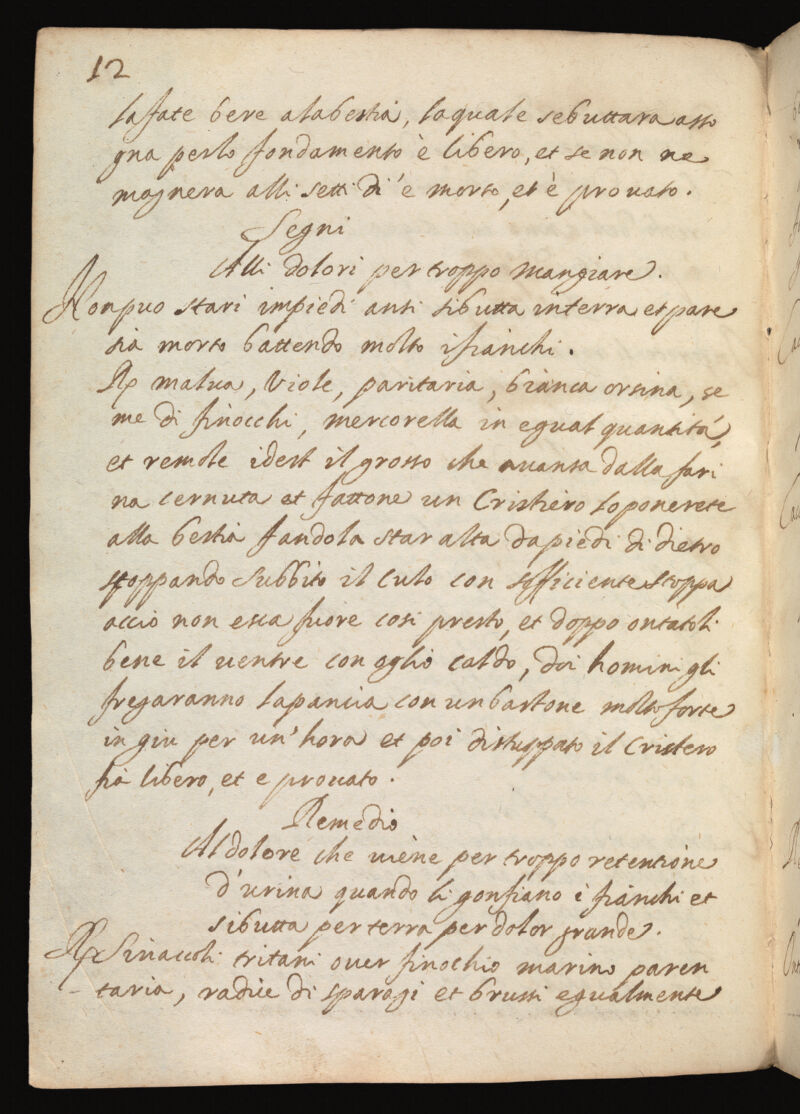 12
la fate bere a la bestia, la quale se buttara asso
gna per lo fondamento è libero, et se non ne
magnera alli setti di è morto, et è prouato.
Segni
Alli dolori per troppo mangiare.
Non puo stari impiedi anti si butta in terra et pare
sia morto battendo molto i fianchi.
Rx malua, Viole, paritaria, bianca orsina, se
me di finocchi, mercorella in egual quantità,
et remole idest il grosso che auansa dalla fari
na cernuta et fattone un Cristiero lo ponerete
alla bestia fandola star alta da piedi di dietro
stoppando subbito il culo con sofficiente stoppa
acciò non esca fuore cosi presto, et doppo ontatoli
bene il uentre con oglio caldo, doi homini gli
fregaranno la pancia con un bastone molto forte
in giu per un'hora et poi distuppato il Cristero
sia libero, et e prouato.
Remedio
Al dolore che uiene per troppo retentione
d'urina quando li gonfiano i fianchi et
si butta per terra per dolor grande.
Rx Sinaccoli tritani ouer finochio marino paren
taria, radice di sparagi et brussi egualmente